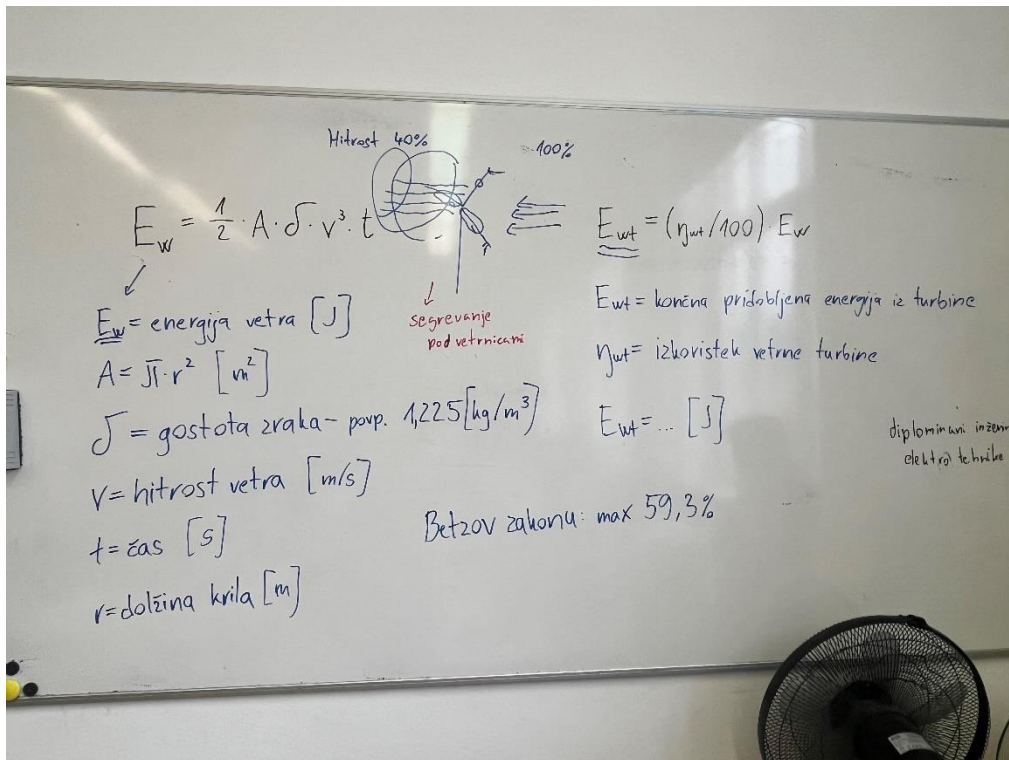 Hitrost 40%
100%
E_w = 1/2 · A · δ · v³ · t
E_wt = (η_wt/100) · E_w
E_w = energija vetra [J]
A = π · r² [m²]
δ = gostota zraka - povp. 1,225 [kg/m³]
v = hitrost vetra [m/s]
t = čas [s]
r = dolžina krila [m]
segrevanje
pod vetrnicami
E_wt = končna pridobljena energija iz turbine
η_wt = izkoristek vetrne turbine
E_wt = ... [J]
Betzov zakonu: max 59,3%
diplominani inženi
elektrotehnike